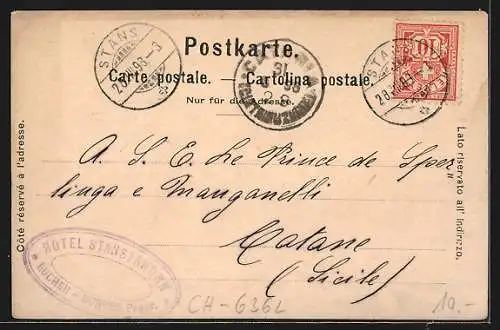 Postkarte.
Carte postale. — Cartolina postale.
Nur für die Adresse.
STANS
28.VIII.98.-3
STANS
28.VIII.98.
31
98
10
Côté réservé à l'adresse.
Lato riservato all' indirizzo.
A. S. E. Le Prince de Sper"
linga e Manganelli
Catane
(Sicile)
HOTEL STANSERHORN
BUCHER
CH-6362
10.-